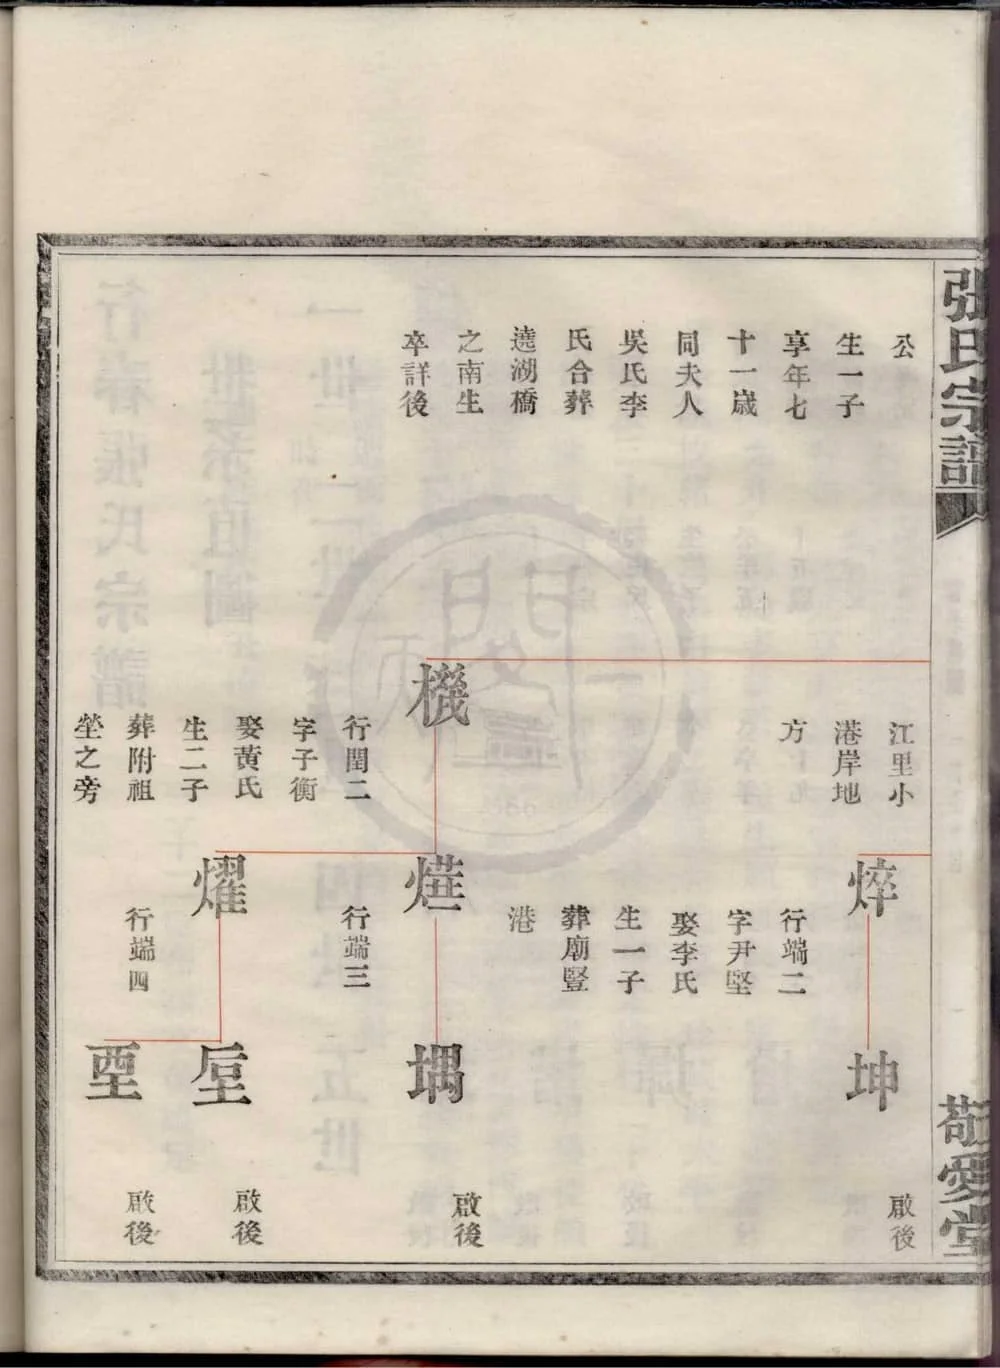 張氏宗譜
敬愛堂
公
生一子
享年七
十一歲
同夫人
吳氏李
氏合葬
遶湖橋
之南生
卒詳後
江里小
港岸地
方
機
行閏二
字子衡
娶黄氏
生二子
葬附祖
塋之旁
焠
行端二
字尹堅
娶李氏
生一子
葬廟豎
港
行端三
燿
行端四
坤
啟後
堣
啟後
垕
啟後
垔
啟後